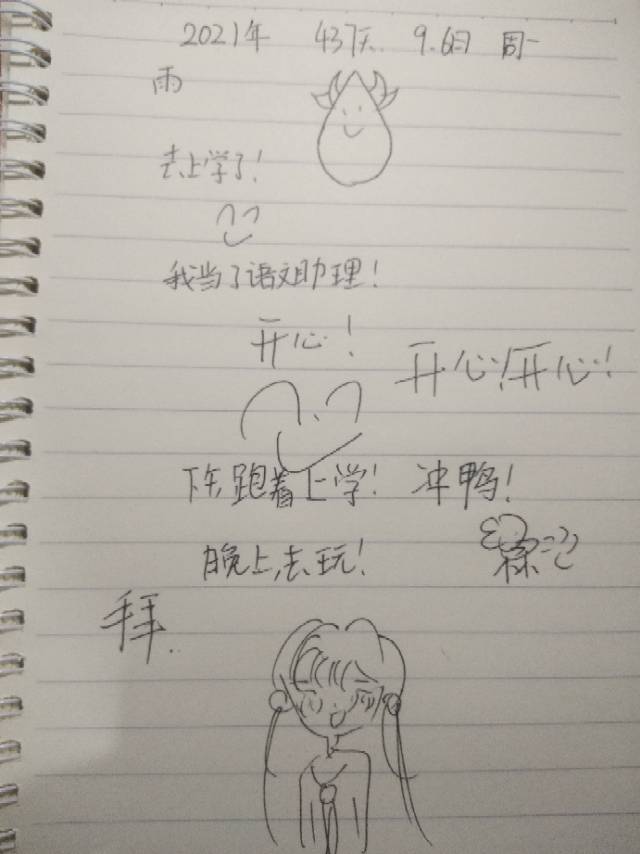 2021年 437天 9.6日 周一
雨
去上学了!
我当了语文助理!
开心!
开心!开心!
下午跑着上学! 冲鸭!
晚上,去玩!
拜.